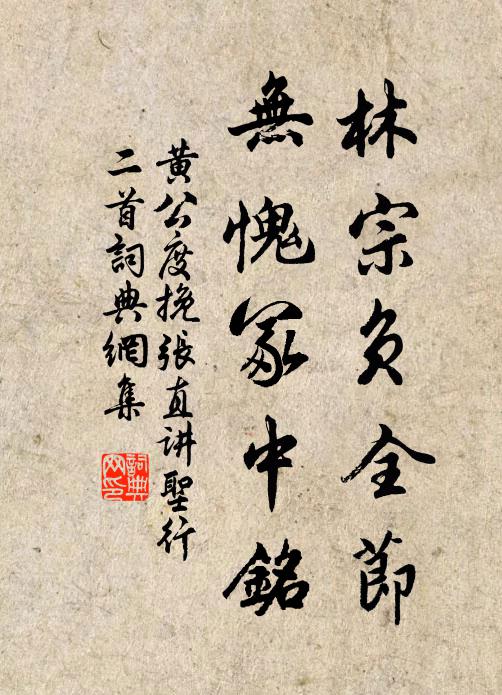 林宗負全節
無愧冢中銘
黄公度挽張直讲聖行
二首詞典網集
詞典
网印